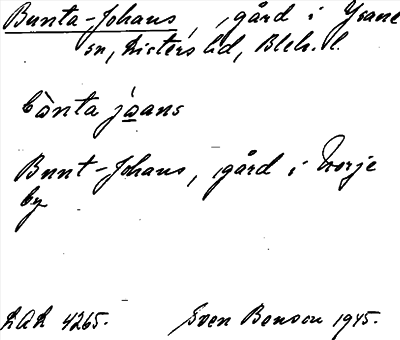 Bunta-Johans, gård i Ysane
sn, Listers hd, Blek. l.
bò̵nta jó̵ans
Bunt-Johans, gård i Norje
by
LAL 4265.
Sven Benson 1945.